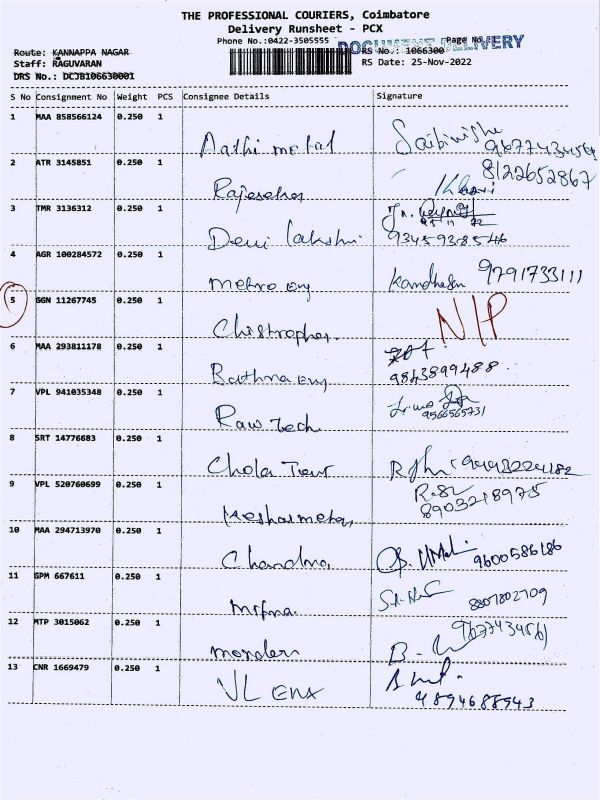 THE PROFESSIONAL COURIERS, Coimbatore
Delivery Runsheet - PCX
Phone No.:0422-3505555 Page No.:1
DOCUMENT DELIVERY
Route: KANNAPPA NAGAR RS No.: 1066300
Staff: RAGUVARAN RS Date: 25-Nov-2022
DRS No.: DCJB106630001
S No Consignment No Weight PCS Consignee Details Signature
1 MAA 858566124 0.250 1
Aathi metal 9677434569
2 ATR 3145851 0.250 1 8122652867
3 TMR 3136312 0.250 1
Devi Lakshmi 9345938546
4 AGR 100284572 0.250 1
Metro eng 9791733111
5 GGN 11267745 0.250 1
Chistropher. N/P
6 MAA 293811178 0.250 1
Rathna eng 9843899488
7 VPL 941035348 0.250 1
Raw Tech 9566565731
8 SRT 14776683 0.250 1
Chola Tour
9 VPL 520760699 0.250 1
8903218975
10 MAA 294713970 0.250 1
Chandra 9600586186
11 GPM 667611 0.250 1
12 MTP 3015062 0.250 1
13 CNR 1669479 0.250 1
VL Enx 4894688943